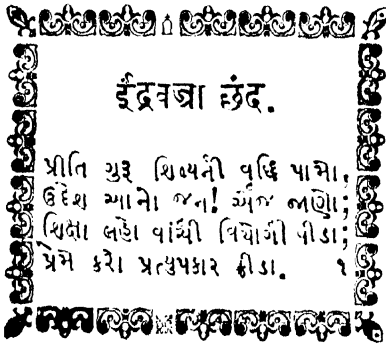 ઈંદ્રવજ્રા છંદ.
પ્રીતિ ગુરૂ શિષ્યની વૃદ્ધિ પામો;
ઉદેશ આનો જન! એજ જાણો;
શિક્ષા લહો વાંચી વિયોગી પીડા;
પ્રેમે કરો પ્રત્યુપકાર ક્રીડા. ૧